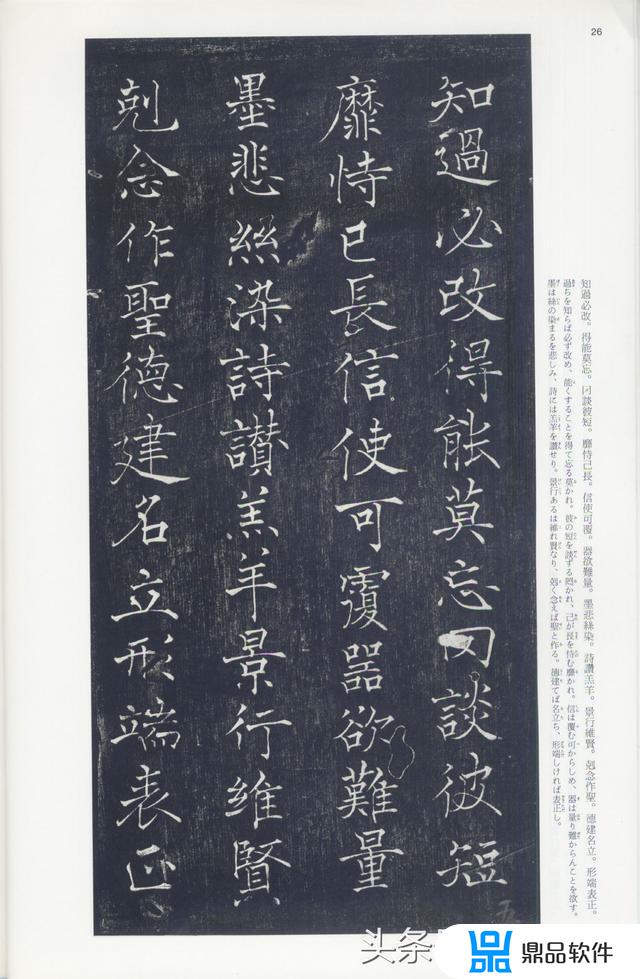 26
知過必改。得能莫忘。罔談彼短。靡恃己長。信使可覆。器欲難量。墨悲絲染。詩讃羔羊。景行維賢。剋念作聖。德建名立。形端表正。
過ちを知らば必ず改め、能くすることを得て忘る莫かれ。彼の短を談ずる罔かれ、己が長を恃む靡かれ。信は覆む可からしめ、器は量り難からんことを欲す。
墨は絲の染まるを悲しみ、詩には羔羊を讃せり。景行あるは維れ賢なり、剋く念えば聖と作る。德建てば名立ち、形端しければ表正し。
知過必改得能莫忘罔談彼短
五
靡恃己長信使可覆器欲難量
墨悲絲染詩讃羔羊景行維賢
剋念作聖德建名立形端表正
头条
鼎品软件